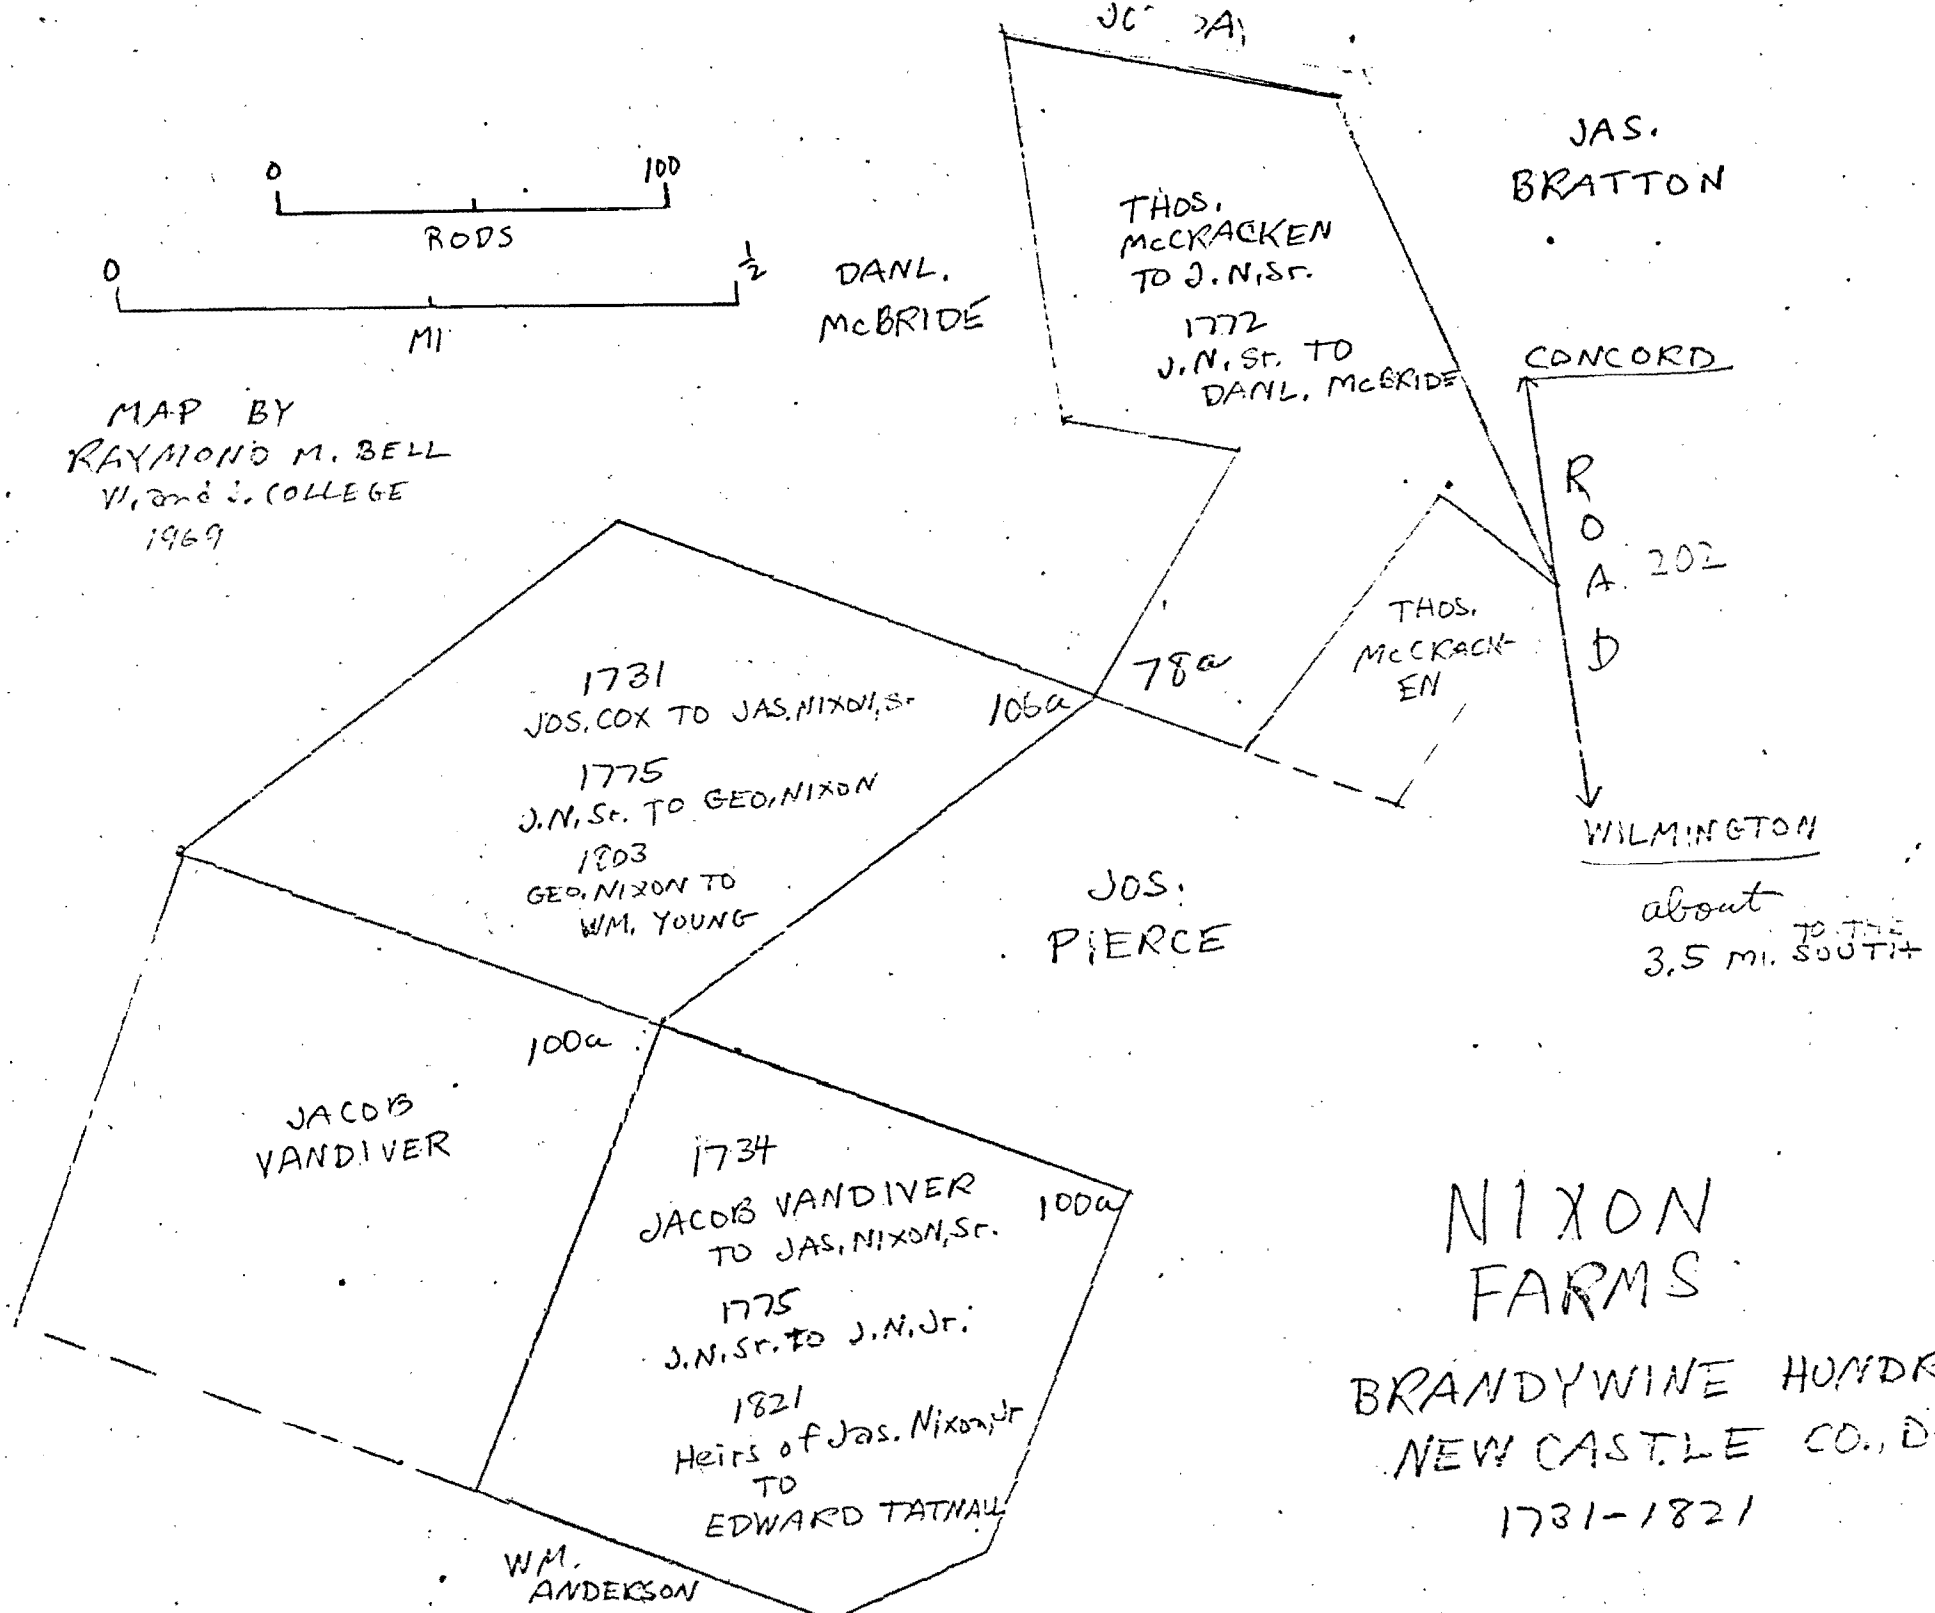 0 100
RODS
0 1/2
MI
MAP BY
RAYMOND M. BELL
W. and J. COLLEGE
1969
DANL.
McBRIDE
THOS.
McCRACKEN
TO J.N,Sr.
1772
J.N, Sr. TO
DANL. McBRIDE
JAS.
BRATTON
CONCORD
ROAD
202
WILMINGTON
about
3.5 mi. TO THE
SOUTH
THOS.
McCRACK-
EN
78a
106a
1731
JOS. COX TO JAS. NIXON, Sr
1775
J.N, Sr. TO GEO, NIXON
1803
GEO. NIXON TO
WM. YOUNG
JOS.
PIERCE
100a
JACOB
VANDIVER
1734
JACOB VANDIVER
TO JAS, NIXON, Sr.
100a
1775
J.N. Sr. to J.N. Jr.
1821
Heirs of Jas. Nixon, Jr
TO
EDWARD TATNALL
WM.
ANDERSON
NIXON
FARMS
BRANDYWINE HUNDR
NEW CASTLE CO., D
1731-1821